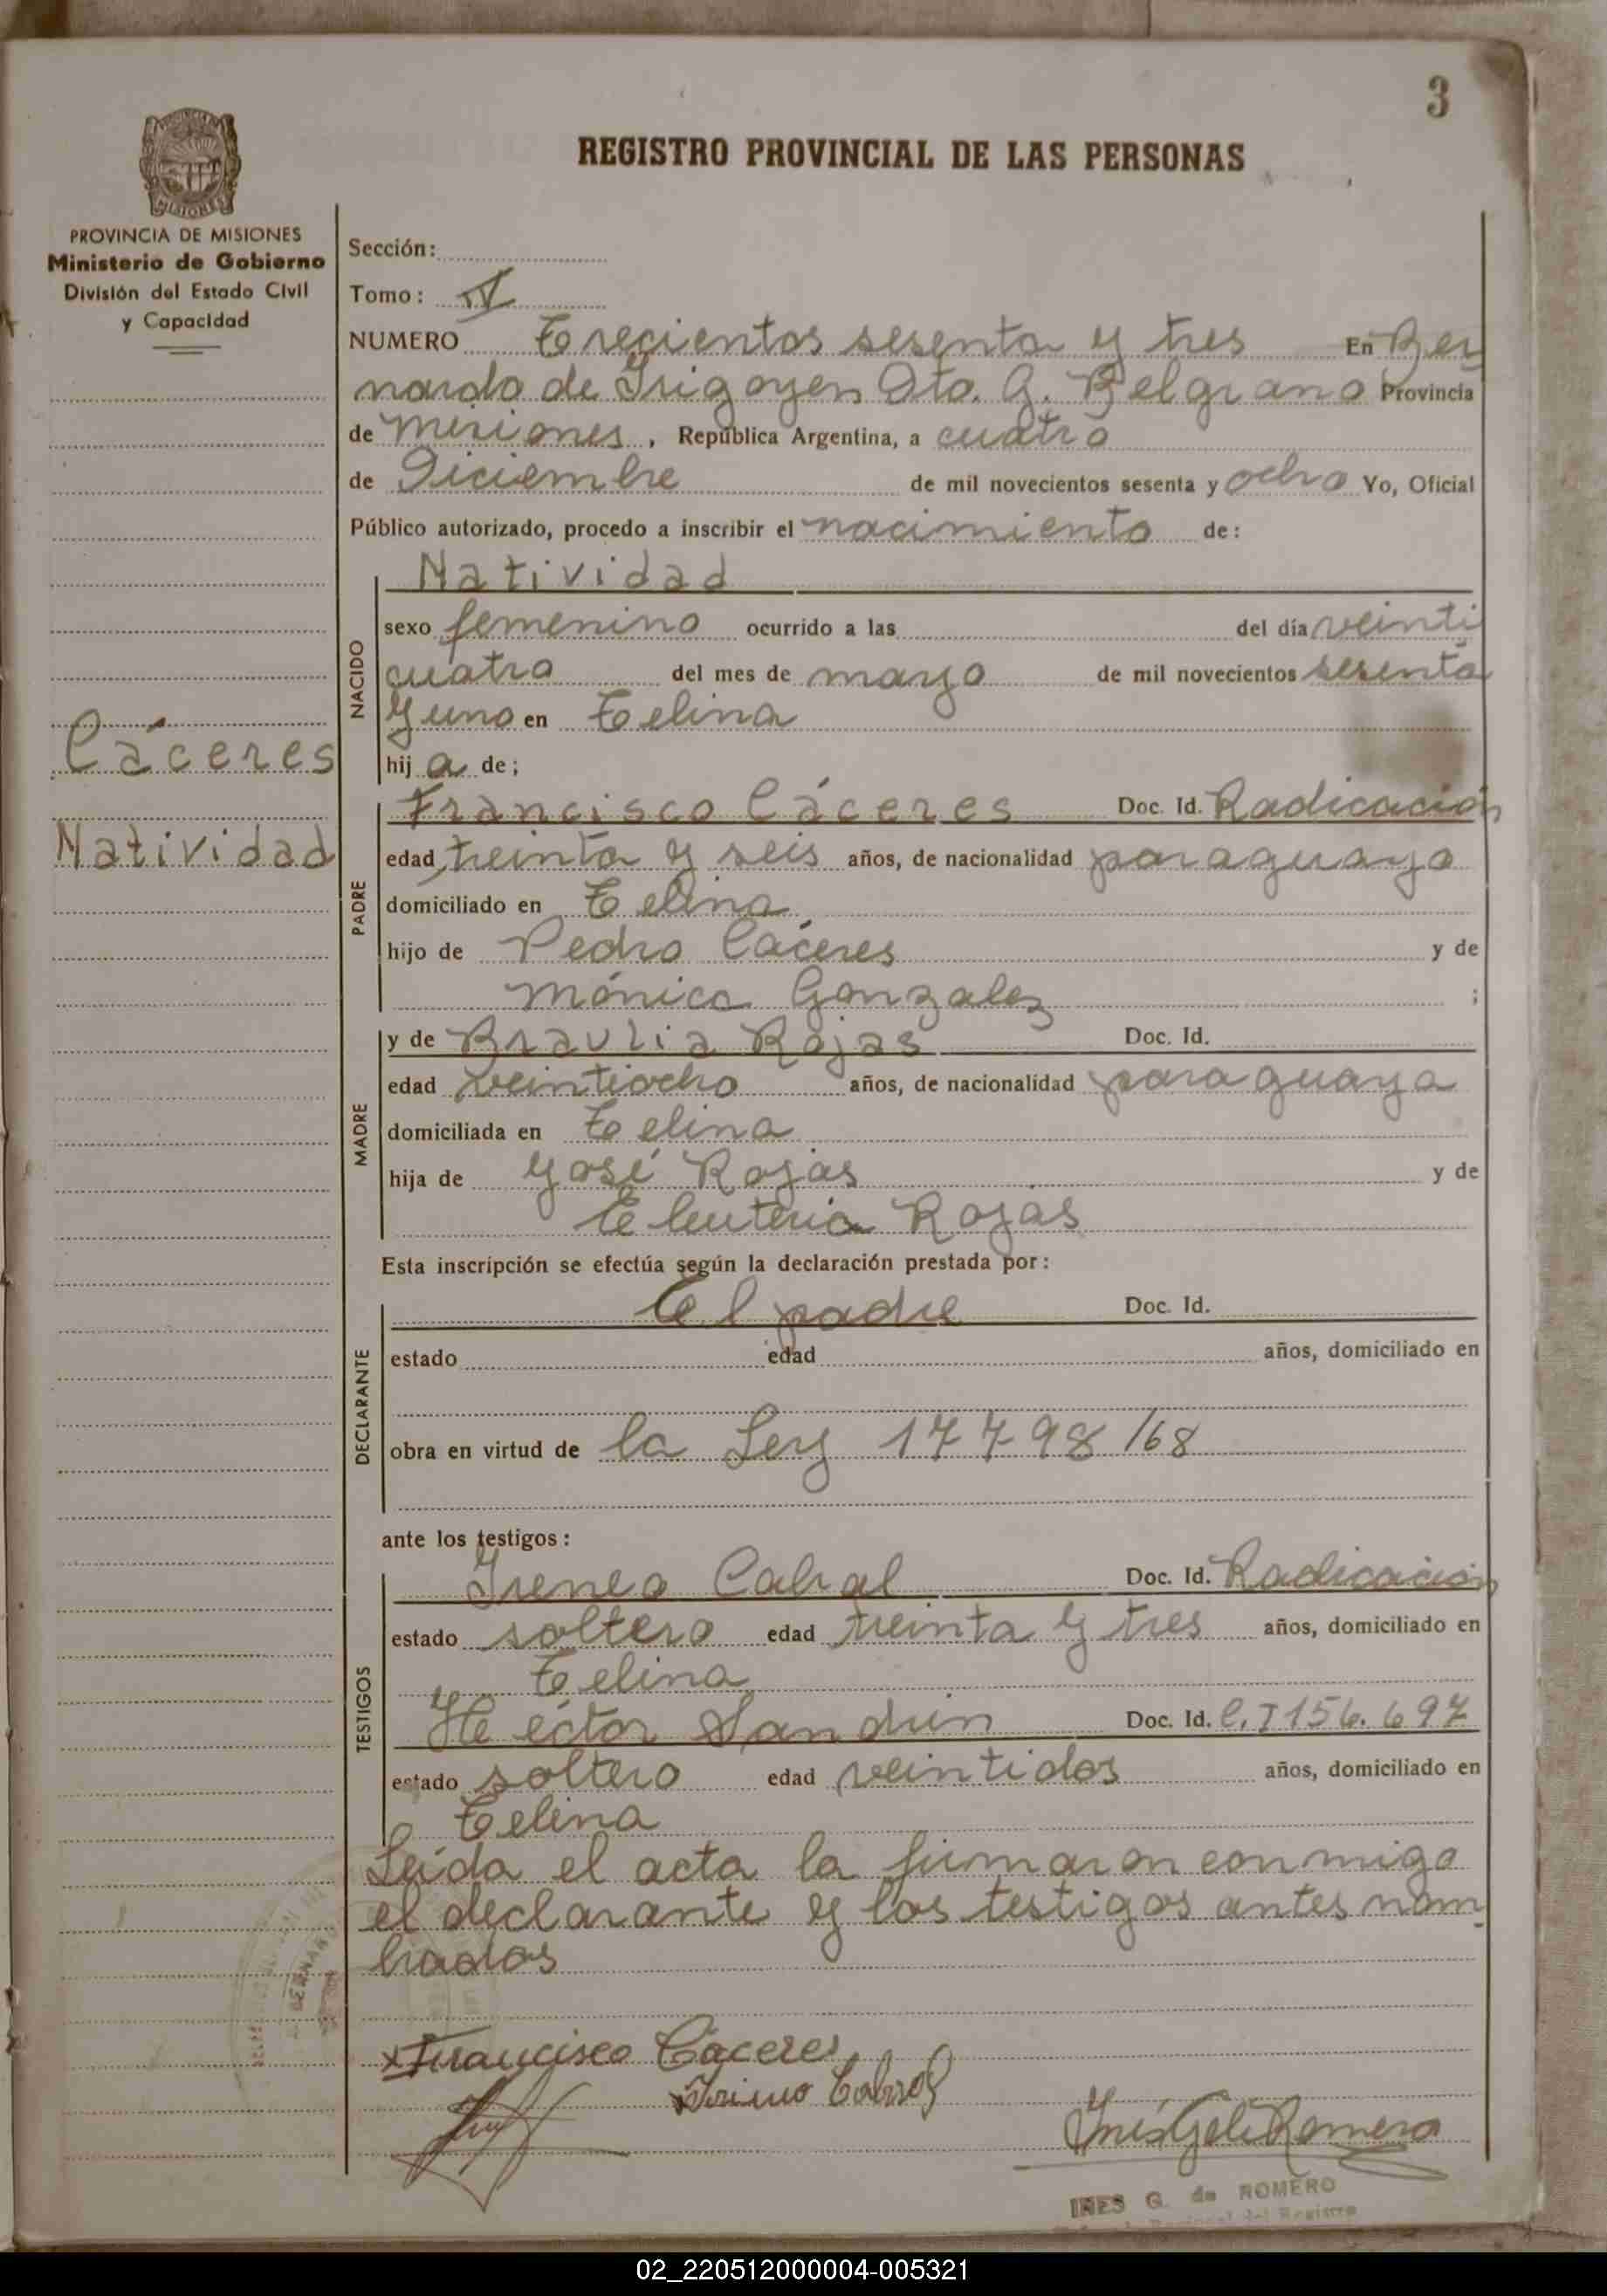 3
REGISTRO PROVINCIAL DE LAS PERSONAS
MISIONES
PROVINCIA DE MISIONES
Ministerio de Gobierno
División del Estado Civil
y Capacidad
Cáceres
Natividad
Sección:
Tomo: IV
NUMERO Trecientos sesenta y tres En Ber
nardo de Irigoyen Dto. G. Belgrano Provincia
de Misiones, República Argentina, a cuatro
de Diciembre de mil novecientos sesenta y ocho Yo, Oficial
Público autorizado, procedo a inscribir el nacimiento de:
NACIDO
Natividad
sexo femenino ocurrido a las del día veinti
cuatro del mes de marzo de mil novecientos sesenta
y uno en Telina
hij a de;
PADRE
Francisco Cáceres Doc. Id. Radicación
edad treinta y seis años, de nacionalidad paraguaya
domiciliado en Telina
hijo de Pedro Cáceres y de
Mónica Gonzalez ;
MADRE
y de Braulia Rojas Doc. Id.
edad veintiocho años, de nacionalidad paraguaya
domiciliada en Telina
hija de José Rojas y de
Eleuteria Rojas
Esta inscripción se efectúa según la declaración prestada por:
DECLARANTE
El padre Doc. Id.
estado edad años, domiciliado en
obra en virtud de la Ley 17798/68
ante los testigos:
TESTIGOS
Ireneo Cabral Doc. Id. Radicación
estado soltero edad treinta y tres años, domiciliado en
Telina
Héctor Sandrin Doc. Id. C.I 156.697
estado soltero edad veintidos años, domiciliado en
Telina
Leída el acta la firmaron conmigo
el declarante y los testigos antes nom
brados
x Francisco Cáceres
x Irineo Cabral
Inés G de Romero
INES G. de ROMERO
02_220512000004-005321